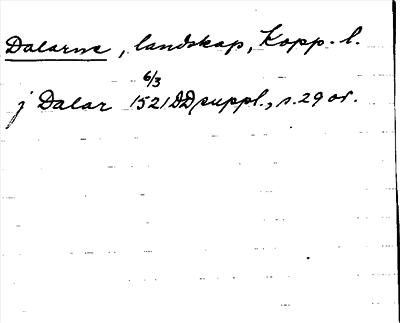 Dalarne, landskap, Kopp. l.
j Dalar 1521 6/3 DD suppl., s. 29 or.